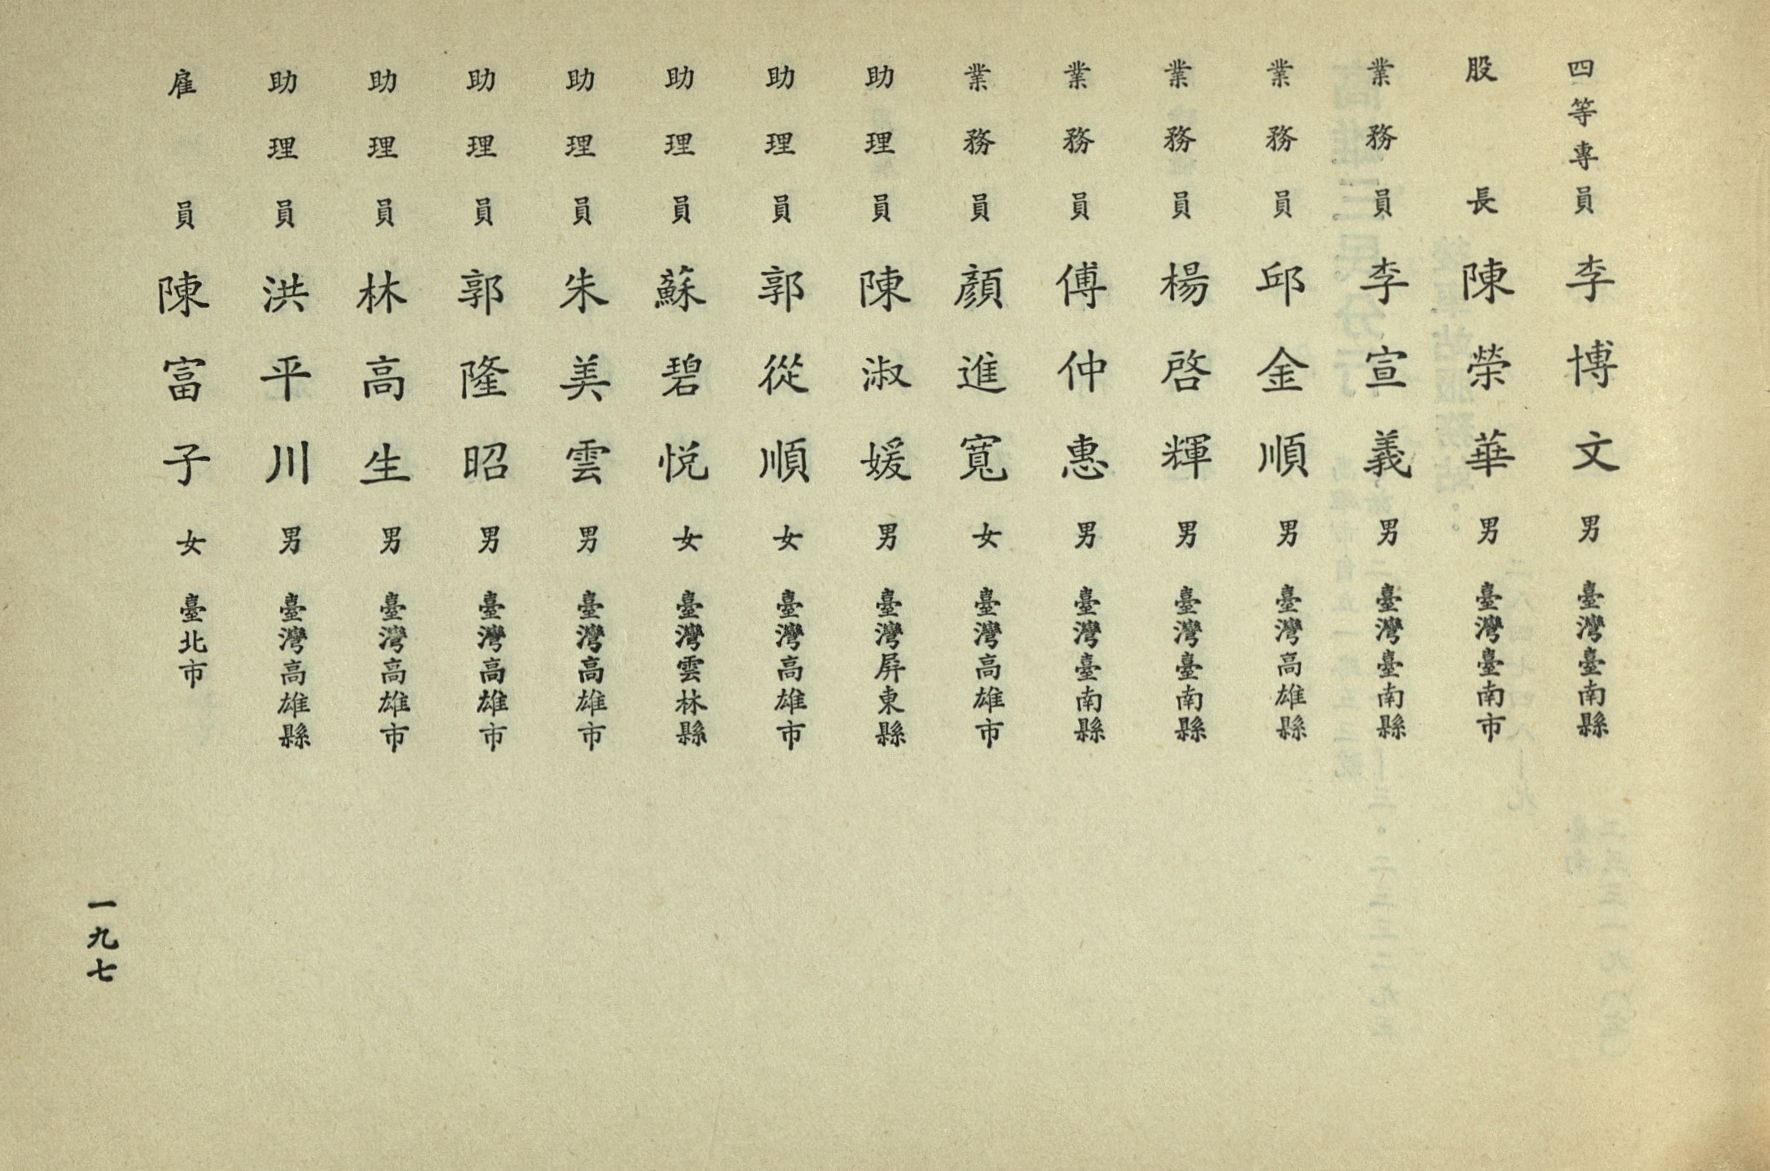 四等專員 李博文 男 臺灣臺南縣
股長 陳榮華 男 臺灣臺南市
業務員 李宣義 男 臺灣臺南縣
業務員 邱金順 男 臺灣高雄縣
業務員 楊啓輝 男 臺灣臺南縣
業務員 傅仲惠 男 臺灣臺南縣
業務員 顏進寬 女 臺灣高雄市
助理員 陳淑媛 男 臺灣屏東縣
助理員 郭從順 女 臺灣高雄市
助理員 蘇碧悅 女 臺灣雲林縣
助理員 朱美雲 男 臺灣高雄市
助理員 郭隆昭 男 臺灣高雄市
助理員 林高生 男 臺灣高雄市
助理員 洪平川 男 臺灣高雄縣
雇員 陳富子 女 臺北市
一九七